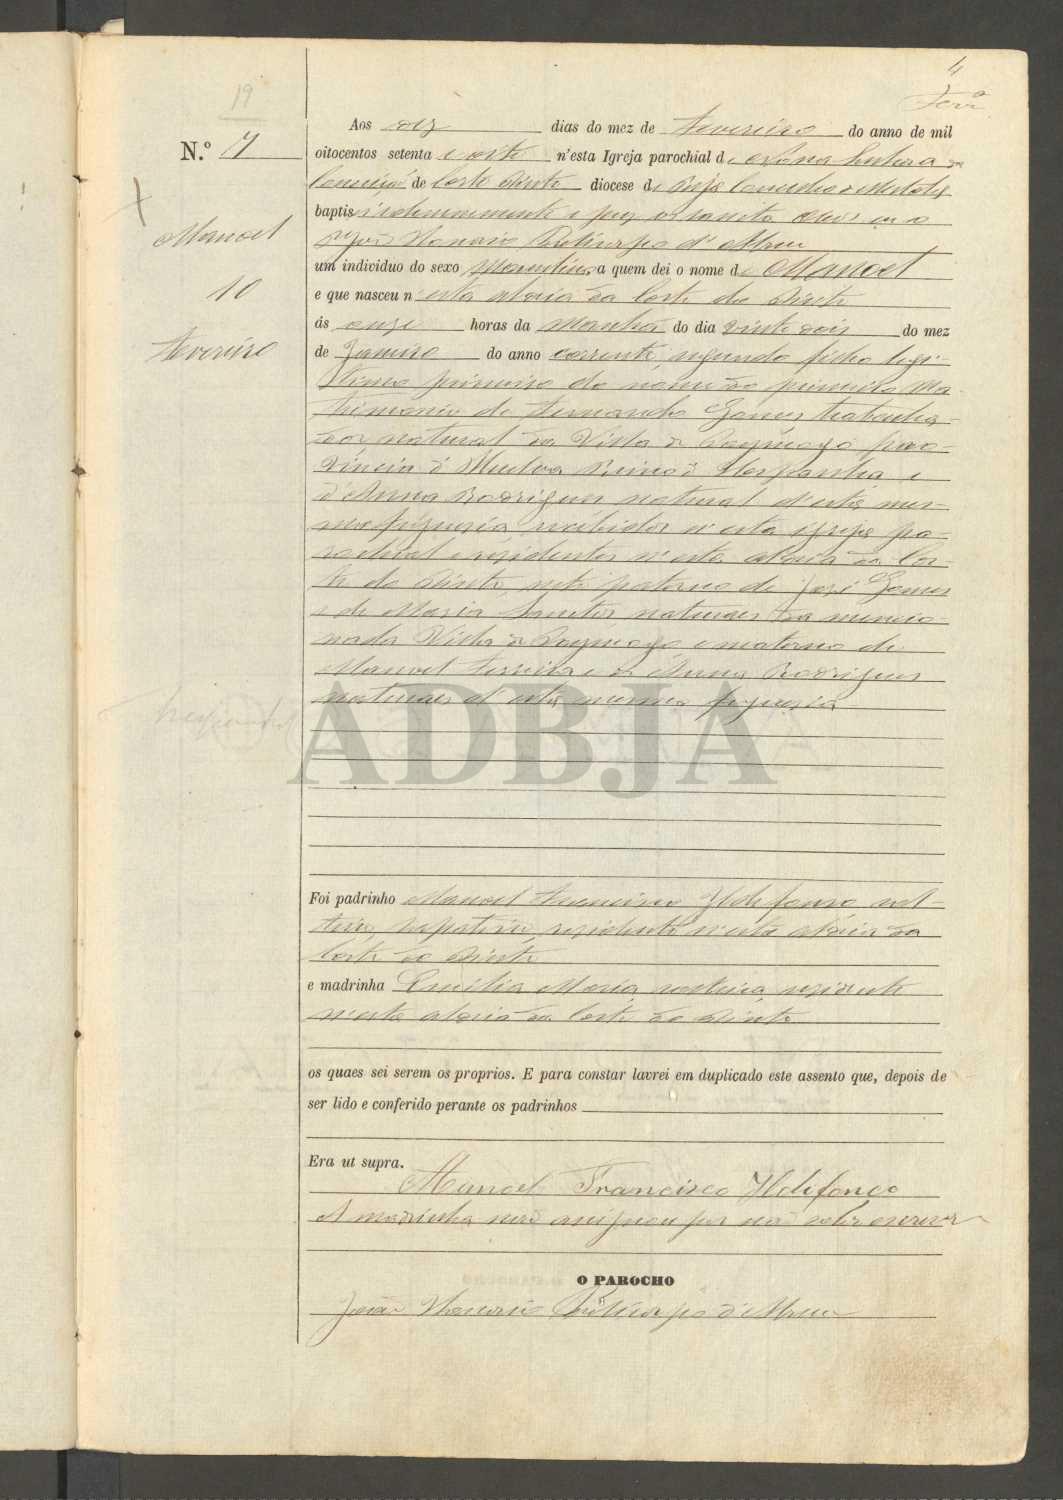 4
19
Aos dez dias do mez de Fevereiro do anno de mil
N.º 7
oitocentos setenta e oito n'esta Igreja parochial de
de Corte do Pinto diocese de Beja Concelho de Mertola
baptisei solemnemente e puz os santos oleos
Manoel
um individuo do sexo masculino a quem dei o nome de Manoel
10
e que nasceu n'esta aldeia da Corte do Pinto
ás onze horas da manhã do dia vinte dois do mez
Fevereiro
de Janeiro do anno corrente, segundo filho legi-
timo primeiro do nome do primeiro Ma-
trimonio de Fernando Gomes trabalha-
dor natural da Villa de Paymogo pro-
vincia d'Huelva Reino d'Hespanha e
d'Anna Rodrigues natural d'esta mes-
ma freguesia, recebidos n'esta igreja pa-
rochial e residentes n'esta aldeia da Cor-
te do Pinto, neto paterno de José Gomes
e de Maria Santos naturaes da mencio-
nada Villa de Paymogo e materno de
Manoel Ferreira e d'Anna Rodrigues
naturaes d'esta mesma freguesia
ADBJA
Foi padrinho Manoel Francisco Ildefonso sol-
teiro, sapateiro, residente n'esta aldeia da
Corte do Pinto
e madrinha Emilia Maria, solteira, residente
n'esta aldeia da Corte do Pinto
os quaes sei serem os proprios. E para constar lavrei em duplicado este assento que, depois de
ser lido e conferido perante os padrinhos
Era ut supra.
Manoel Francisco Ildefonço
A madrinha não assignou por não saber escrever
O PAROCHO
João